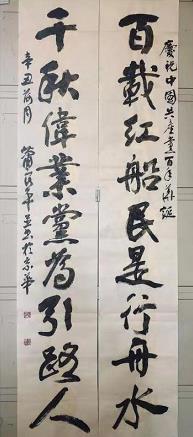 慶祝中國共產黨百年華誕
百載红船民是行舟水
千秋偉業黨為引路人
辛丑荷月
於京華